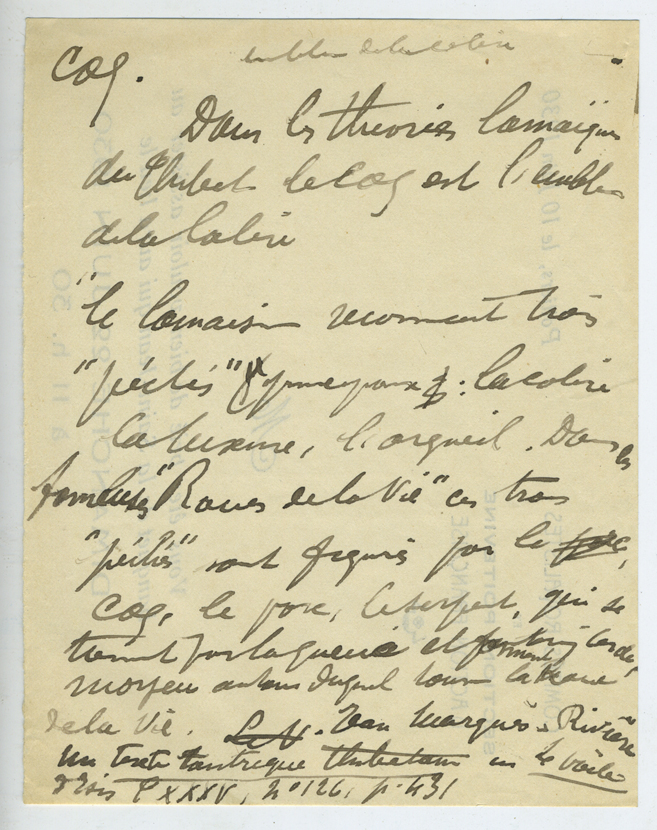 emblème de la colère
Coq.
Dans les théories lamaïques
du Thibet le Coq est l'emblème
de la Colère
"le lamaisme reconnait trois
"péchés" principaux : la colère
la luxure, l'orgueil. Dans les
fameuses "Roues de la Vie" ces trois
"péchés" sont figurés par le porc,
coq, le porc, le serpent, qui se
tiennent par la queue et forment
moyeu autour duquel tourne la Roue
de la Vie. Jean Marquès-Rivière
Un texte tantrique thibetain in Le Voile
d'Isis TXXXV, n° 126, p. 431